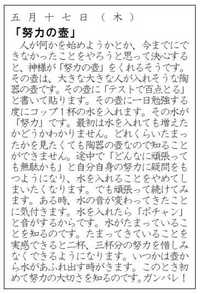 五月十七日（木）
「努力の壺」
　人が何かを始めようかとか、今までにで
きなかったことをやろうと思って決心する
と、神様が「努力の壺」をくれるそうです。
その壺は、大きな大きな人が入れそうな陶
器の壺です。その壺に「テストで百点とる」
と書いて貼ります。その壺に一日勉強する
度にコップ！杯の水を入れます。その水が
「努力」です。最初は水を入れても増えた
かどうかわかりません。どれくらいたまっ
たかを見たくても陶器の壺なので知ること
ができません。途中で「どんなに頑張って
も無駄かも」と自分自身の努力に疑問をも
つようになり、水を入れることをやめてし
まいたくなります。でも頑張って続けてみ
ます。ある時、水の音が変わってきたこと
に気付きます。水を入れたら「ポチャン」
と音がするからです。水がたまっているこ
とを知るのです。たまってきていることを
実感できると二杯、三杯分の努力を惜しみ
なくできるようになります。いつかは壺か
ら水があふれ出す時がきます。このとき初
めて努力の大切さを知るのです。ガンバレ！